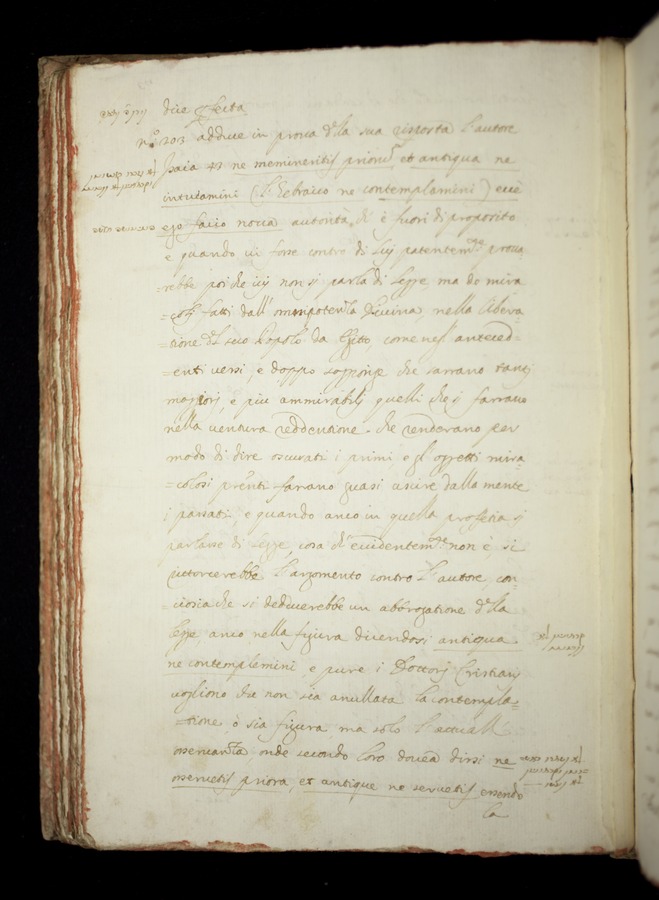 die
nº 203 adduce in prova della sua risposta l'autore
Isaia 43 ne memineritis priorū, et antiqua ne
intutamini (l'Ebraico ne contemplamini) ecce
ego facio nova autorità, che è fuori di proposito
e quando vi fosse contro di lui patentemte prova
=rebbe poiche ivi non si parla di legge, ma de mira
=coli fatti dall' omnipotenza Divina, nella libera
=tione del suo Popolo da Egitto, come negl' anteced=
=enti versi, e doppo soppone che sarrano tanti
maggiori, e piu ammirabili quelli che si farrano
nella ventura reddentione. che renderano per
modo di dire oscurati i primi, e gl' oggetti mira=
=colosi prēnti farrano quasi uscire dalla mente
i passati, e quando anco in quella profetia si
parlasse di legge, cosa ch' evidentemte non è, si
ritorcerebbe l'argomento contro l'autore con=
=ciosia che si dedducerebbe un abbrogatione della
legge, anco nella figura dicendosi antiqua
ne contemplamini, e pure i Dottori Cristiani
vogliono che non sia anullata la contempla=
=tione o sia figura, ma solo l'actuall
osservanza onde secondo loro dovea dirsi ne
osservetis priora, et antique ne servetis essendo
la